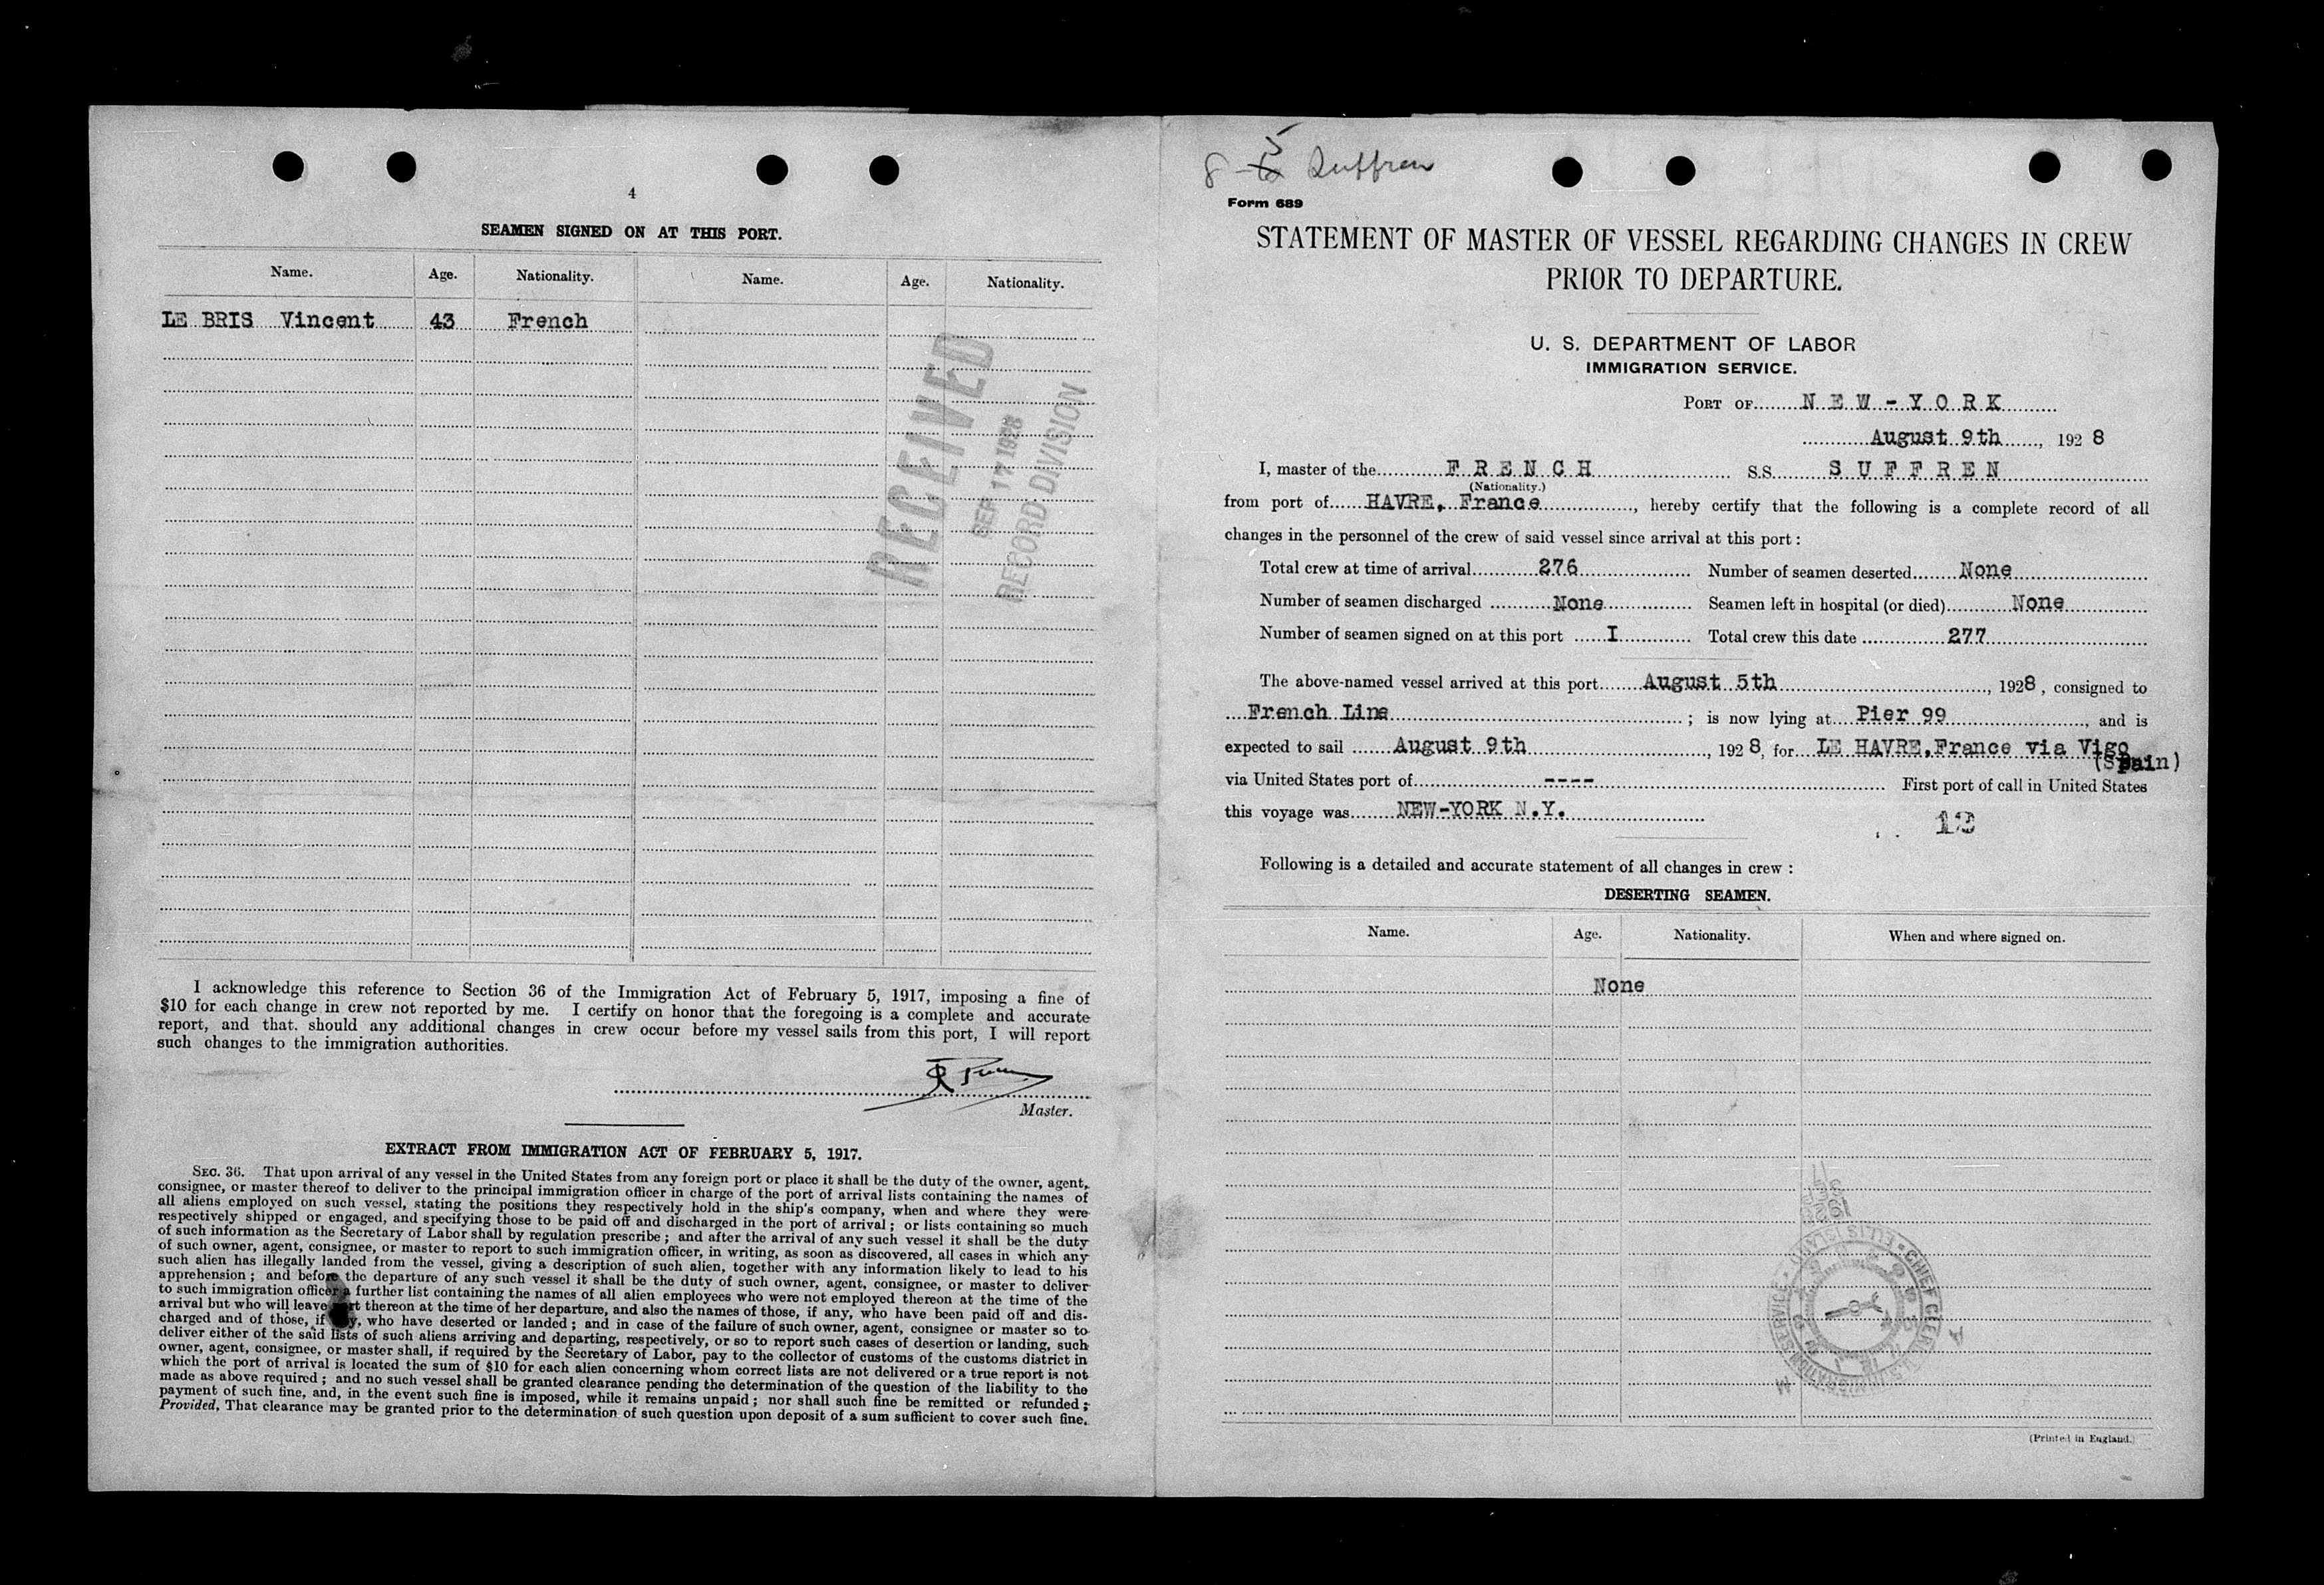 4
SEAMEN SIGNED ON AT THIS PORT.
Name. Age. Nationality. Name. Age. Nationality.
LE BRIS Vincent 43 French
RECEIVED
SEP 17 1928
RECORD DIVISION
I acknowledge this reference to Section 36 of the Immigration Act of February 5, 1917, imposing a fine of
$10 for each change in crew not reported by me. I certify on honor that the foregoing is a complete and accurate
report, and that. should any additional changes in crew occur before my vessel sails from this port, I will report
such changes to the immigration authorities.
Master.
EXTRACT FROM IMMIGRATION ACT OF FEBRUARY 5, 1917.
SEC. 36. That upon arrival of any vessel in the United States from any foreign port or place it shall be the duty of the owner, agent,
consignee, or master thereof to deliver to the principal immigration officer in charge of the port of arrival lists containing the names of
all aliens employed on such vessel, stating the positions they respectively hold in the ship's company, when and where they were
respectively shipped or engaged, and specifying those to be paid off and discharged in the port of arrival; or lists containing so much
of such information as the Secretary of Labor shall by regulation prescribe; and after the arrival of any such vessel it shall be the duty
of such owner, agent, consignee, or master to report to such immigration officer, in writing, as soon as discovered, all cases in which any
such alien has illegally landed from the vessel, giving a description of such alien, together with any information likely to lead to his
apprehension; and before the departure of any such vessel it shall be the duty of such owner, agent, consignee, or master to deliver
to such immigration officer a further list containing the names of all alien employees who were not employed thereon at the time of the
arrival but who will leave port thereon at the time of her departure, and also the names of those, if any, who have been paid off and dis-
charged and of those, if any, who have deserted or landed; and in case of the failure of such owner, agent, consignee or master so to
deliver either of the said lists of such aliens arriving and departing, respectively, or so to report such cases of desertion or landing, such
owner, agent, consignee, or master shall, if required by the Secretary of Labor, pay to the collector of customs of the customs district in
which the port of arrival is located the sum of $10 for each alien concerning whom correct lists are not delivered or a true report is not
made as above required; and no such vessel shall be granted clearance pending the determination of the question of the liability to the
payment of such fine, and, in the event such fine is imposed, while it remains unpaid; nor shall such fine be remitted or refunded;
Provided, That clearance may be granted prior to the determination of such question upon deposit of a sum sufficient to cover such fine.
8-5 Suffren
Form 689
STATEMENT OF MASTER OF VESSEL REGARDING CHANGES IN CREW
PRIOR TO DEPARTURE.
U. S. DEPARTMENT OF LABOR
IMMIGRATION SERVICE.
PORT OF NEW-YORK
August 9th, 1928
I, master of the FRENCH S.S. SUFFREN
(Nationality.)
from port of HAVRE, France, hereby certify that the following is a complete record of all
changes in the personnel of the crew of said vessel since arrival at this port:
Total crew at time of arrival 276 Number of seamen deserted None
Number of seamen discharged None Seamen left in hospital (or died) None
Number of seamen signed on at this port I Total crew this date 277
The above-named vessel arrived at this port August 5th, 1928, consigned to
French Line; is now lying at Pier 99, and is
expected to sail August 9th, 1928, for LE HAVRE, France via Vigo
(Spain)
via United States port of ---- First port of call in United States
this voyage was NEW-YORK N.Y.
12
Following is a detailed and accurate statement of all changes in crew:
DESERTING SEAMEN.
Name. Age. Nationality. When and where signed on.
None
CHIEF CLERK
ELLIS ISLAND
IMMIGRATION SERVICE
(Printed in England.)